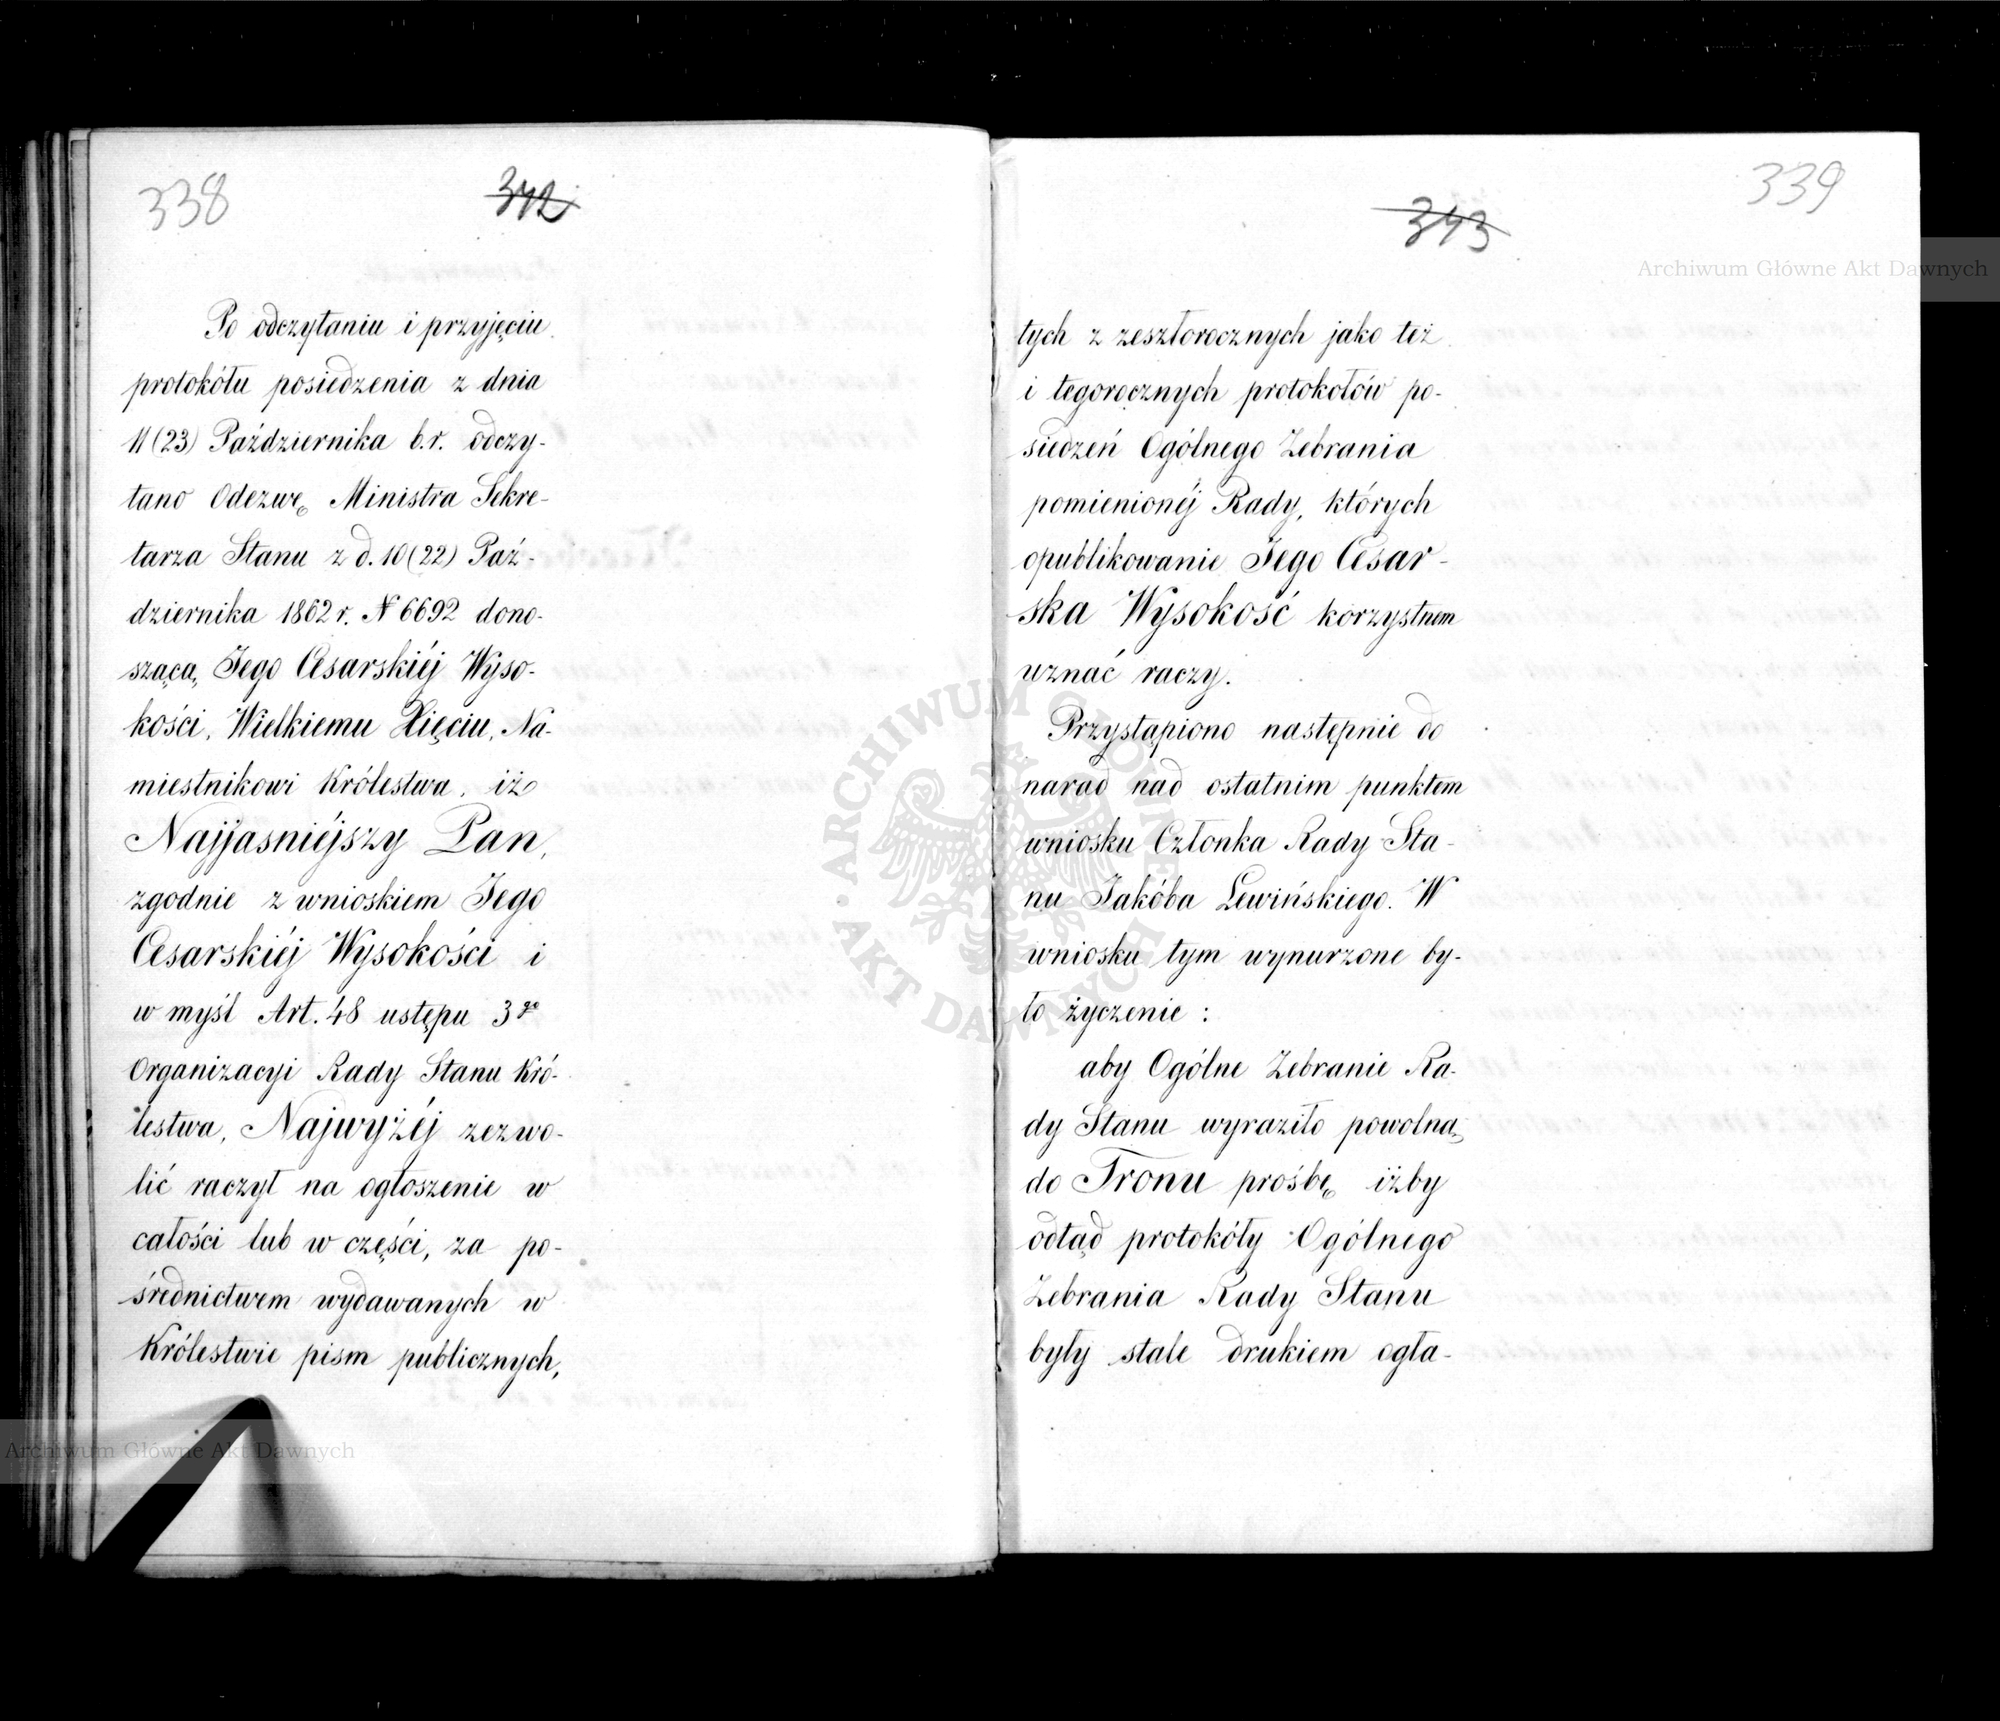 338
342
Po odczytaniu i przyjęciu
protokółu posiedzenia z dnia
11 (23) Października b.r. odczy-
tano Odezwę Ministra Sekre-
tarza Stanu z d. 10 (22) Paź-
dziernika 1862 r. N 6692 dono-
szącą, Jego Cesarskiéj Wyso-
kości, Wielkiemu Xięciu, Na-
miestnikowi Królestwa, iż
Najjaśniéjszy Pan,
zgodnie z wnioskiem Jego
Cesarskiéj Wysokości i
w myśl Art. 48 ustępu 3go
Organizacyi Rady Stanu Kró-
lestwa, Najwyżéj zezwo-
lić raczył na ogłoszenie w
całości lub w części, za po-
średnictwem wydawanych w
Królestwie pism publicznych,
339
343
tych z zeszłorocznych jako też
i tegorocznych protokołów po-
siedzeń Ogólnego Zebrania
pomienionéj Rady, których
opublikowanie Jego Cesar-
ska Wysokość korzystnem
uznać raczy.
Przystąpiono następnie do
narad nad ostatnim punktem
wniosku Członka Rady Sta-
nu Jakóba Lewińskiego. W
wniosku tym wynurzone by-
ło życzenie:
aby Ogólne Zebranie Ra-
dy Stanu wyraziło powolną
do Tronu prośbę iżby
odtąd protokóły Ogólnego
Zebrania Rady Stanu
były stale drukiem ogła-
Archiwum Główne Akt Dawnych
ARCHIWUM GŁÓWNE AKT DAWNYCH
Archiwum Główne Akt Dawnych